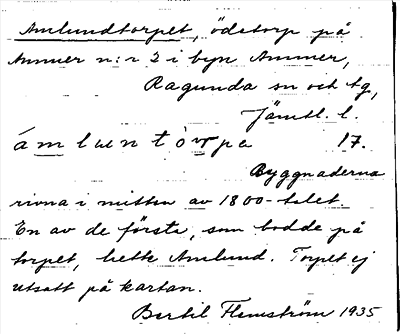 Amlundtorpet, ödetorp på
Ammer n:r 2 i byn Ammer,
Ragunda sn och tg,
Jämtl. l.
ámluentòrpe 17.
Byggnaderna
rivna i mitten av 1800-talet.
En av de första, som bodde på
torpet, hette Amlund. Torpet ej
utsatt på kartan.
Bertil Flemström 1935